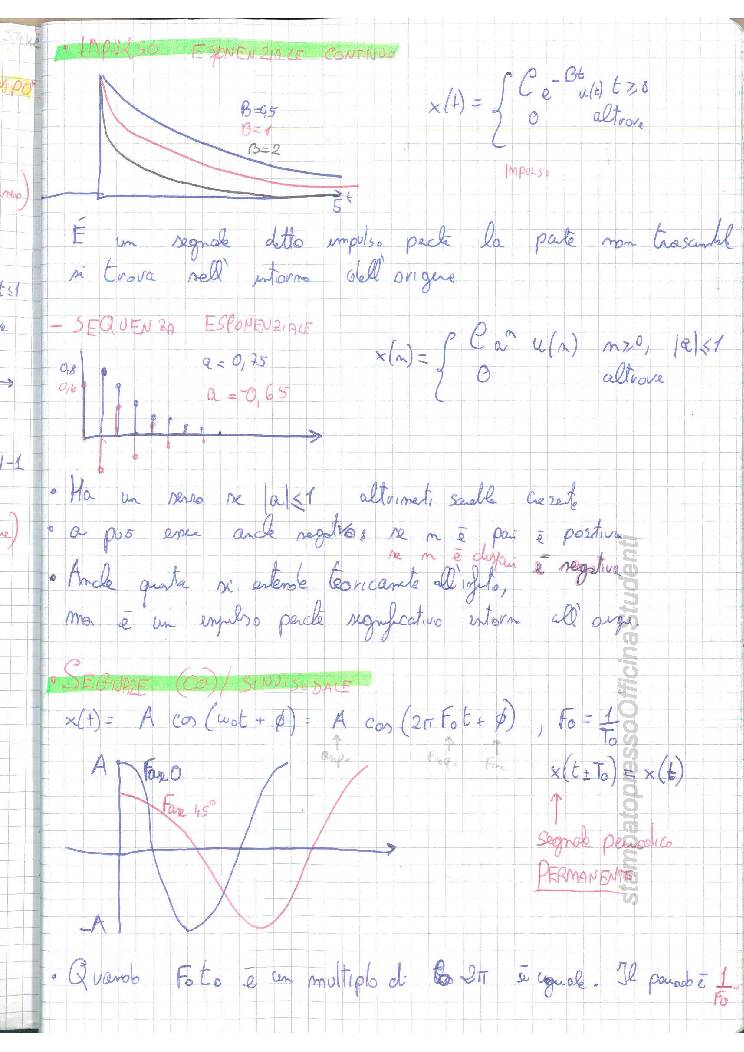 • IMPULSO ESPONENZIALE CONTINUO
x(t) = { C e^-Bt u(t) t ≥ 0
0 altrove
IMPULSO
B=
B=1
B=2
5 t
É un segnale detto impulso perchè la parte non
si trova nell' intorno dell' origine
- SEQUENZA ESPONENZIALE
x(n) = { C a^n u(n) n≥0, |a|≤1
0 altrove
0,8
0,6
a = 0,75
a = -0,65
• Ha un senso se |a|≤1 altrimenti
• a può anche negativo: se n è pari è positiva
se n è dispari è negativa
• Anche questa si estende teoricamente all'
ma è un impulso perchè significativo intorno all'
• SEGNALE (CO)/SINUSOIDALE
x(t) = A cos (ω0t + φ) = A cos (2π F0 t + φ) , F0 = 1/T0
A
Fase 0
Fase 45°
-A
x(t ± T0) = x(t)
segnale periodico
PERMANENTE
• Quando F0 t0 è un multiplo di 2π è uguale. Il periodo è 1/F0
stampatopressoOfficinaStudenti